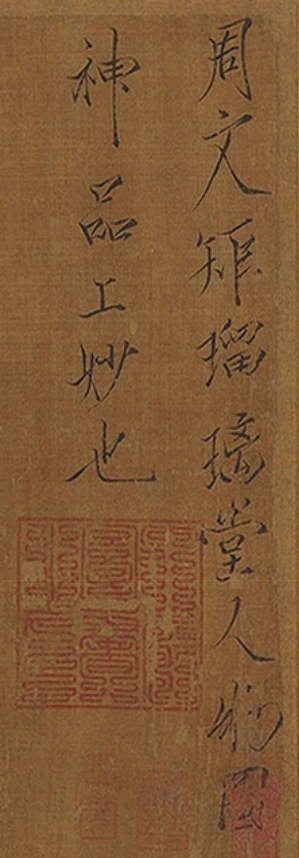 周文矩琉璃堂人物圖
神品工妙也